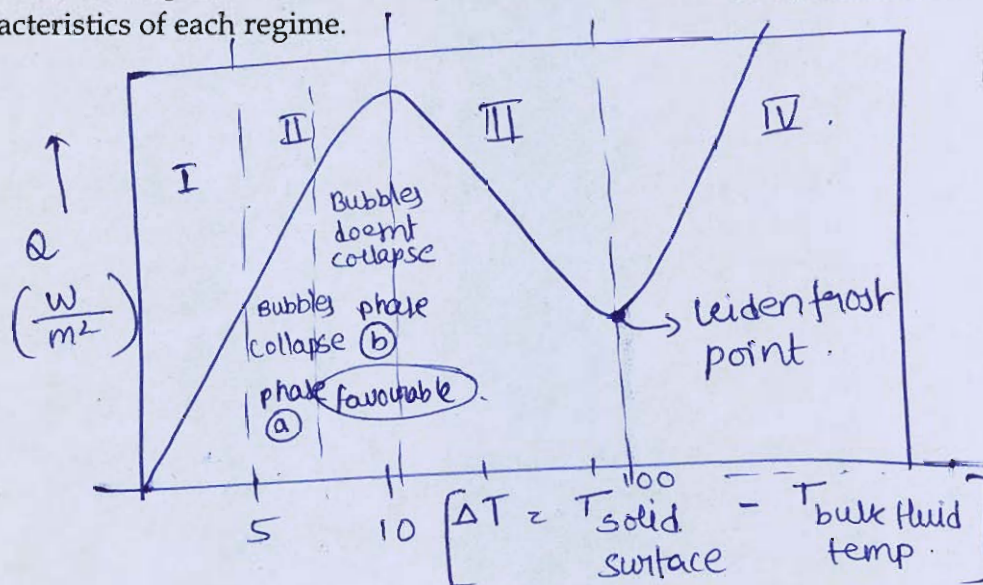 acteristics of each regime.
I
II
III
IV.
Q
(W/m²)
Bubbles
doesnt
collapse
Bubbles phase
collapse (b)
phase favourable.
(a)
Leidenfrost
point.
5
10
100
[ΔT = T solid surface - T bulk fluid temp.]